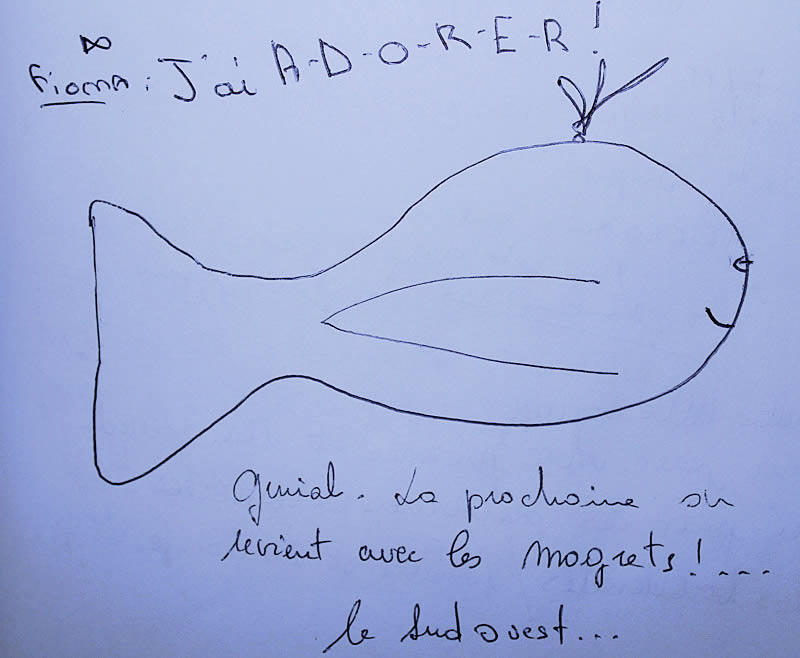 Fiona : J'ai A-D-O-R-E-R !
Génial. La prochaine on
revient avec les magrets!....
le Sud Ouest...